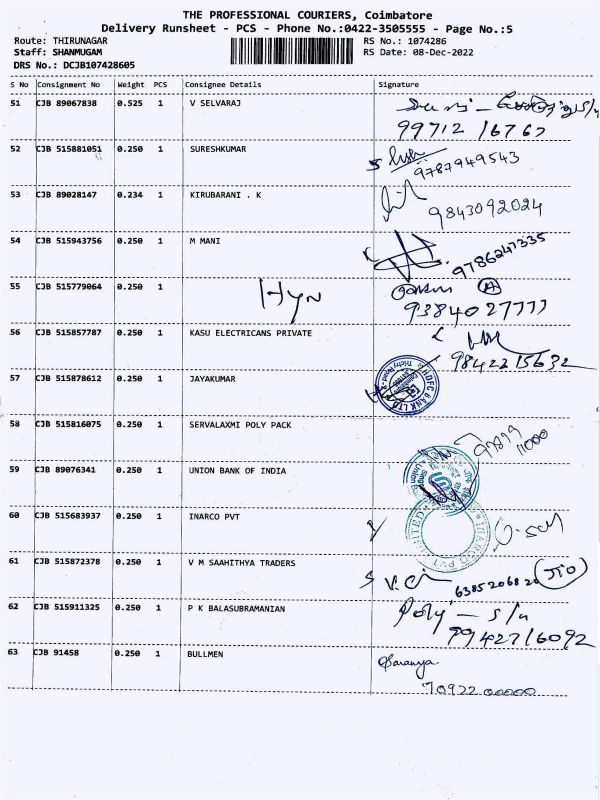 THE PROFESSIONAL COURIERS, Coimbatore
Delivery Runsheet - PCS - Phone No.:0422-3505555 - Page No.:5
Route: THIRUNAGAR RS No.: 1074286
Staff: SHANMUGAM RS Date: 08-Dec-2022
DRS No.: DCJB107428605
S No Consignment No Weight PCS Consignee Details Signature
51 CJB 89067838 0.525 1 V SELVARAJ
99712 16767
52 CJB 515881051 0.250 1 SURESHKUMAR
9787949543
53 CJB 89028147 0.234 1 KIRUBARANI . K
9843092024
54 CJB 515943756 0.250 1 M MANI
9786247335
55 CJB 515779064 0.250 1
Hyn
9384027777
56 CJB 515857787 0.250 1 KASU ELECTRICANS PRIVATE
9842215632
57 CJB 515878612 0.250 1 JAYAKUMAR
HDFC BANK LTD
Trichy Road
58 CJB 515816075 0.250 1 SERVALAXMI POLY PACK
59 CJB 89076341 0.250 1 UNION BANK OF INDIA
60 CJB 515683937 0.250 1 INARCO PVT
INARCO PVT LIMITED
61 CJB 515872378 0.250 1 V M SAAHITHYA TRADERS
6385206820
62 CJB 515911325 0.250 1 P K BALASUBRAMANIAN
Poly - s/n
7942716092
63 CJB 91458 0.250 1 BULLMEN
Saranya
70922 00000